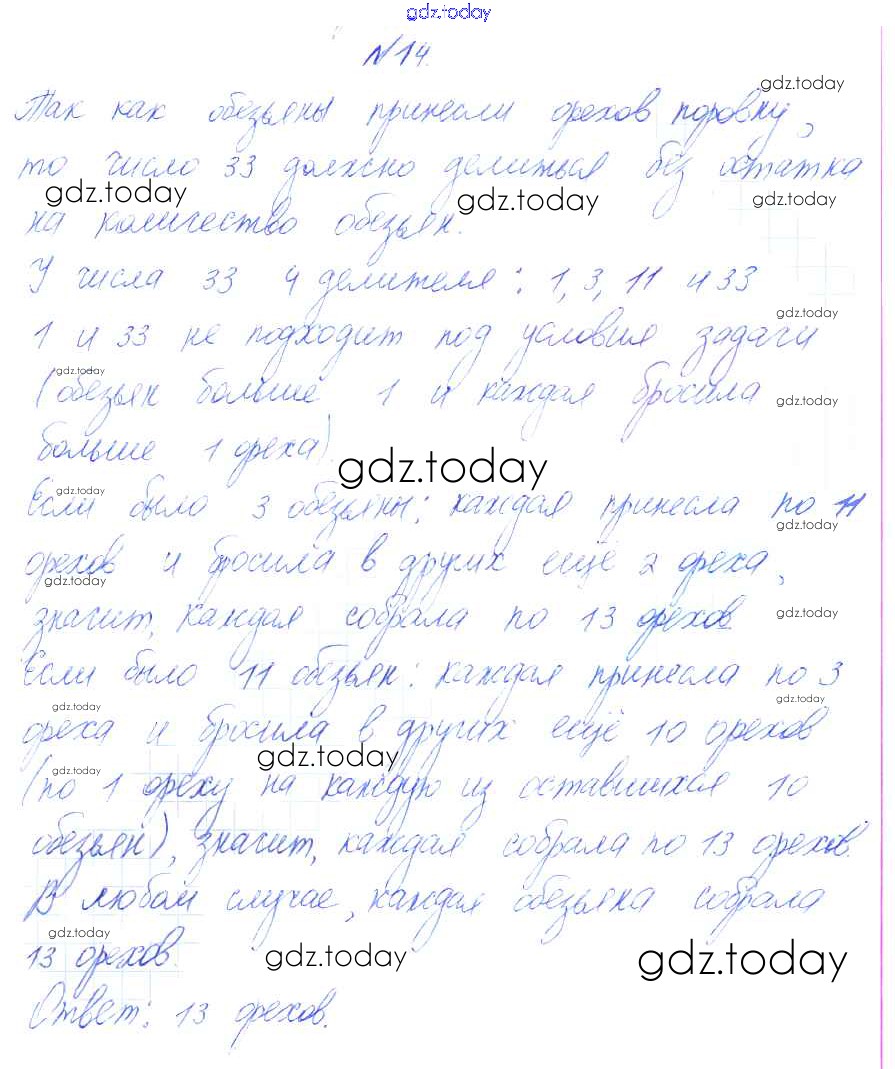 gdz.today
№14.
gdz.today
Так как обезьяны принесли орехов поровну,
то число 33 должно делиться без остатка
gdz.today gdz.today gdz.today
на количество обезьян.
У числа 33 4 делителя: 1, 3, 11 и 33
gdz.today
1 и 33 не подходит под условия задачи
gdz.today
(обезьян больше 1 и каждая бросила
gdz.today
больше 1 ореха)
gdz.today
gdz.today
Если было 3 обезьяны: каждая принесла по 11
gdz.today
орехов и бросила в других ещё 2 ореха,
gdz.today
значит, каждая собрала по 13 орехов.
gdz.today
Если было 11 обезьян: каждая принесла по 3
gdz.today gdz.today
ореха и бросила в других ещё 10 орехов
gdz.today
gdz.today
(по 1 ореху на каждую из оставшихся 10
обезьян), значит, каждая собрала по 13 орехов.
В любом случае, каждая обезьяна собрала
gdz.today
13 орехов.
gdz.today gdz.today
Ответ: 13 орехов.